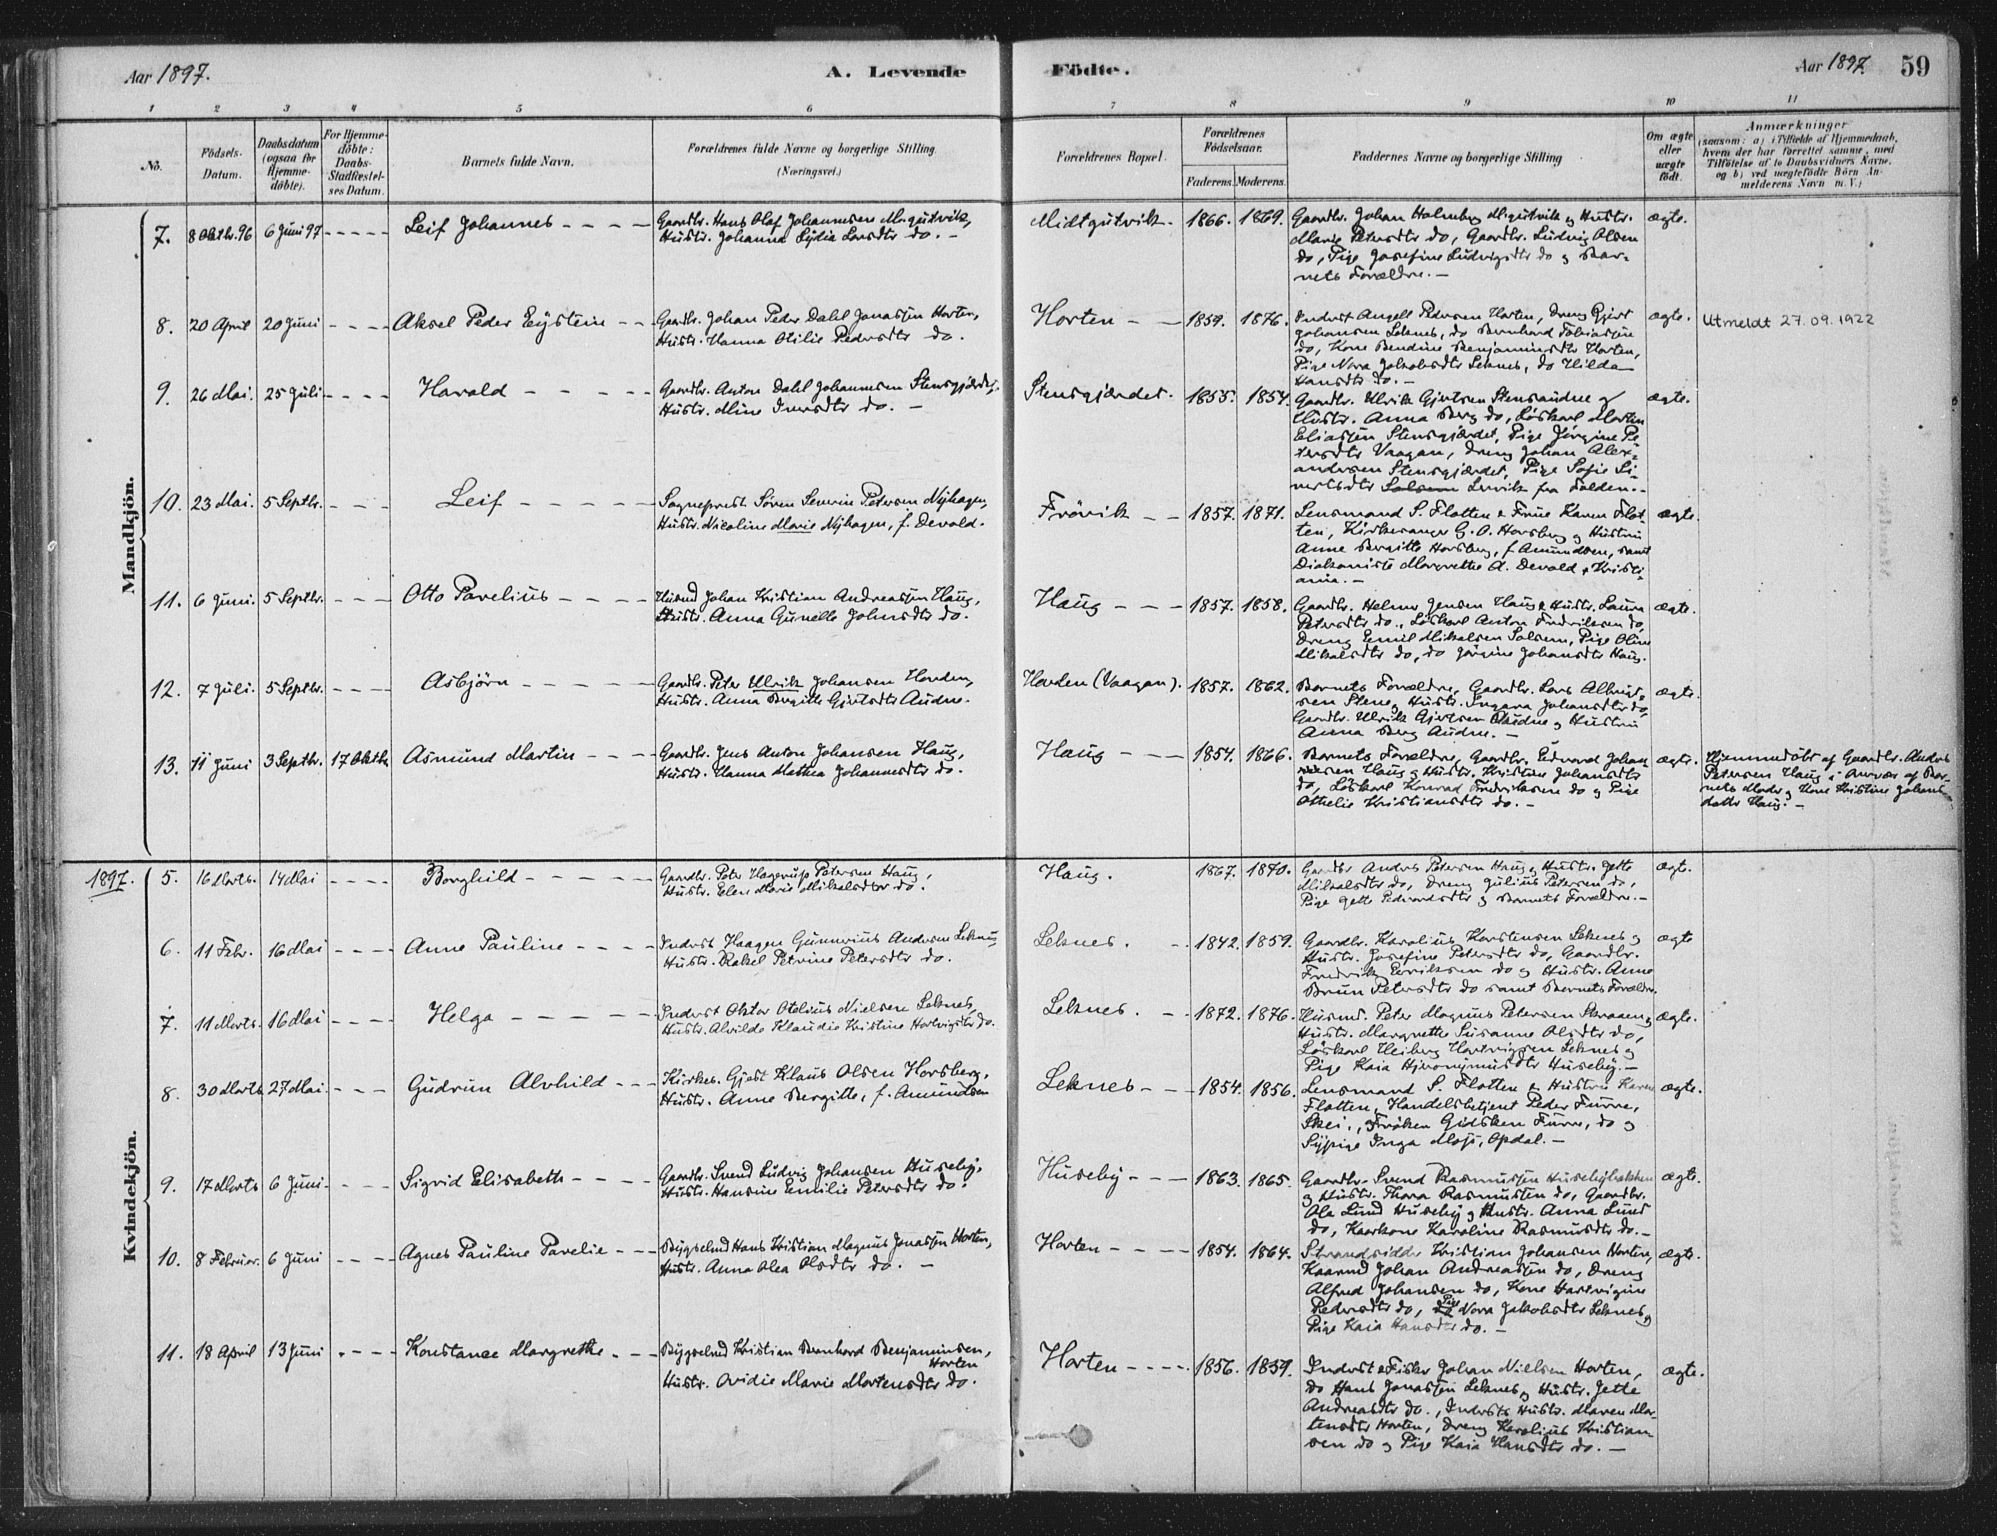 Aar 1897.
A. Levende
Födte.
Aar 1897.
59
1 2 3 4 5 6 7 8 9 10 11
No.
Födsels-
Datum.
Daabsdatum
(ogsaa for
Hjemme-
døbte).
For Hjemme-
döbte:
Daabs-
Stadfæstel-
ses Datum.
Barnets fulde Navn.
Forældrenes fulde Navne og borgerlige Stilling
(Næringsvei.)
Forældrenes Bopæl.
Forældrenes
Födselsaar.
Faderens. Moderens.
Faddernes Navne og borgerlige Stilling
Om ægte
eller
uægte
födt.
Anmærkninger
(saasom: a) i Tilfælde af Hjemmedaab,
hvem der har forrettet samme, med
Tilföielse af to Daabsvidners Navne.
og b) ved uægtefödte Börn An-
melderens Navn m. V.)
Mandkjön.
7. 8 Oktbr. 96 6 Juni 97 Leif Johannes
Gaardbr. Hans Olaf Johannesen M.gutvik,
Hustr. Johanna Lydia Larsdtr do.
Midtgutvik 1866. 1869.
Gaardbr. Johan Holmberg M.gutvik og Hustr.
Marie Petersdtr do, Gaardbr. Ludvig Olsen
do, Pige Josefine Ludvigsdtr do og Bar-
nets Forældre.
ægte.
8. 20 April 20 Juni Aksel Peder Eystein
Gaardbr. Johan Peder Dahl Jonassen Horten,
Hustr. Hanna Otilie Pedersdtr do.
Horten 1859. 1876.
Inderst Angell Pedersen Horten, Dreng Gjert
Johansen Leknes, do Bernhard Tobiassen
do, Kone Bendine Benjaminsdtr Horten,
Pige Nora Jakobsdtr Leknes, do Hilda
Hansdtr do.
ægte.
Utmeldt 27.09.1922
9. 26 Mai. 25 Juli Harald
Gaardbr. Anton Dahl Johannesen Stensgjærdet,
Hustr. Mine Iversdtr do.
Stensgjærdet. 1855. 1854.
Gaardbr. Ulrik Gjertsen Stensaudne og
Hustr. Anna Berg do, Løskarl Martin
Eliassen Stensgjærdet, Pige Jørgine Pe-
tersdtr Vaagan, Dreng Johan Alex-
andersen Stensgjærdet, Pige Sofie Si-
vertsdtr Salsem Lervik fra Folden.
ægte.
10. 23 Mai. 5 Septbr. Leif
Sogneprest Søren Severin Petersen Nyhagen,
Hustr. Nicoline Marie Nyhagen, f. Devold.
Frövik 1857. 1871.
Lensmand S. Flotten & Frue Karen Flot-
ten, Kirkesanger G. O. Horsberg og Hustru
Anne Bergitte Horsberg, f. Amundsen, samt
Diakonisse Margrethe A. Devold, Kristi-
ania.
ægte.
11. 6 Juni. 5 Septbr. Otto Pavelius
Husmd Johan Kristian Andreassen Haug,
Hustr. Anna Gunelle Johnsdtr do.
Haug 1857. 1858.
Gaardbr. Helmer Jensen Haug & Hustr. Laura
Petersdtr do., Løskarl Anton Fredriksen do,
Dreng Emil Mikalsen Solsem, Pige Oline
Mikalsdtr do, do Jørgine Johansdtr Haug.
ægte.
12. 7 Juli. 5 Septbr. Asbjörn
Gaardbr. Peter Ulrik Johansen Horden,
Hustr. Anna Bergitte Gjertsdtr Audne.
Horden (Vaagan). 1857. 1862.
Barnets Forældre, Gaardbr. Lars Albrigt-
sen Stene og Hustr. Ingara Johansdtr do,
Gaardbr. Ulrik Gjertsen Audne og Hustru
Anna Berg Audne.
ægte.
13. 11 Juni 3 Septbr. 17 Oktbr. Asmund Martin
Gaardbr. Jens Anton Johansen Haug,
Hustr. Hanna Mathea Johannesdtr do.
Haug 1854. 1866.
Barnets Forældre, Gaardbr. Edvard Johan
nesen Haug og Hustr. Kristine Johansdtr
do, Løskarl Konrad Fredriksen do og Pige
Othelie Kristiansdtr do.
ægte.
Hjemmedöbt af Gaardbr. Anders
Petersen Haug i Anvær. af Bar-
nets Moder og Kone Kristine Johans
datter Haug.
1897.
Kvindekjön.
5. 16 Marts. 14 Mai Borghild
Gaardbr. Peter Hagerup Petersen Haug,
Hustr. Elen Marie Mikalsdtr do.
Haug. 1867. 1870.
Gaardbr Anders Petersen Haug og Hustr. Jette
Mikalsdtr do, Dreng Julius Petersen do,
Pige Jette Edvardsdtr og Barnets Forældre.
ægte.
6. 11 Febr. 16 Mai Anne Pauline
Inderst Haagen Gunnerius Andersen Leknes,
Hustr. Rakel Petrine Petersdtr do.
Leknes. 1842. 1859.
Gaardbr. Karolius Karstensen Leknes og
Hustr. Josefine Petersdtr do, Gaardbr.
Fredrik Eriksen do og Hustr. Anne
Brun Petersdtr do samt Barnets Forældre.
ægte
7. 11 Marts. 16 Mai Helga
Inderst Oktor Otelius Nielsen Leknes,
Hustr. Alvilde Klaudie Kristine Hartvigsdtr do.
Leknes. 1872. 1876.
Husmd. Peter Magnus Petersen Straaen og
Hustr. Margrethe Susanne Olsdtr do,
Løskarl Heiberg Hartvigsen Leknes og
Pige Kaia Hjeronymusdtr Huseby.
ægte.
8. 30 Marts 27 Mai Gudrun Alvhild
Kirkes. Gjert Klaus Olsen Horsberg,
Hustr. Anne Bergitte, f. Amundsen
Leknes 1854. 1856.
Lensmand S. Flotten & Hustru Karen
Flotten, Handelsbetjent Peder Furre,
Skei, Fröken Gidsken Furre, do og
Sypige Inga Mojs, Opdal.
ægte.
9. 17 Marts 6 Juni Sigrid Elisabeth
Gaardbr. Svend Ludvig Johansen Huseby,
Hustr. Hansine Emilie Petersdtr do.
Huseby 1863. 1865.
Gaardbr. Svend Rasmussen Husebybakken
og Hustr. Thora Rasmussen do, Gaardbr.
Ole Lund Huseby og Hustr. Anna Lund
do, Kaarkone Karoline Rasmusdtr do.
ægte.
10. 8 Februar. 6 Juni Agnes Pauline Pavelie
Bygselmd Hans Kristian Magnus Jonassen Horten,
Hustr. Anna Olea Olsdtr do.
Horten 1854. 1864.
Strandsidder Kristian Johansen Horten,
Kaarmd Johan Andreassen do, Dreng
Alfred Johansen do, Kone Hartvigine
Pedersdtr do, Pige Nora Jakobsdtr Leknes og
Pige Kaia Hansdtr do.
ægte.
11. 18 April 13 Juni Konstance Margrethe
Bygselmd Kristian Bernhard Benjaminsen,
Horten
Hustr. Ovidie Marie Mortensdtr do.
Horten 1856. 1859.
Inderst & Fisker Johan Nielsen Horten,
do Hans Jonassen Leknes og Hustr. Jette
Andreasdtr do., Inderst Hustr. Maren Mor-
tensdtr Horten, Dreng Karolius Kristian-
sen do og Pige Kaia Hansdtr do.
ægte.